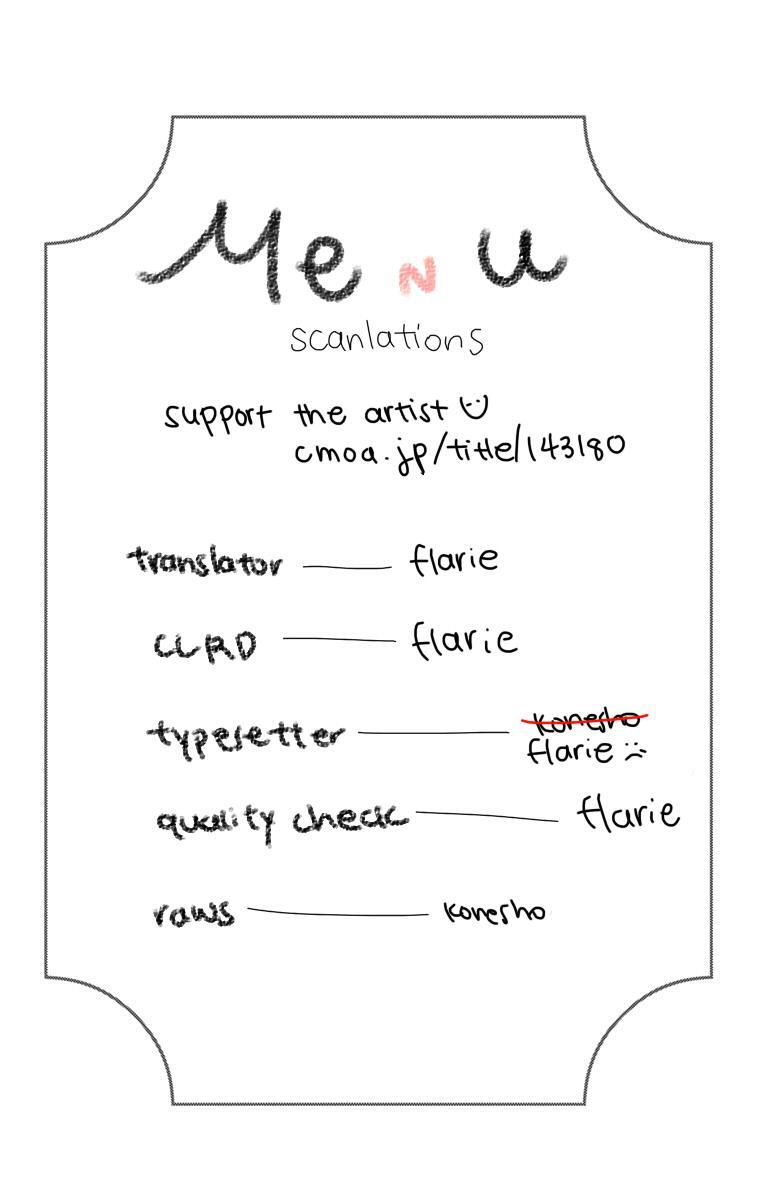 MeNu
scanlations
support the artist
cmoa.jp/title/143180
translator — flarie
CLRD — flarie
typesetter — konesho
flarie :(
quality check — flarie
raws — konesho